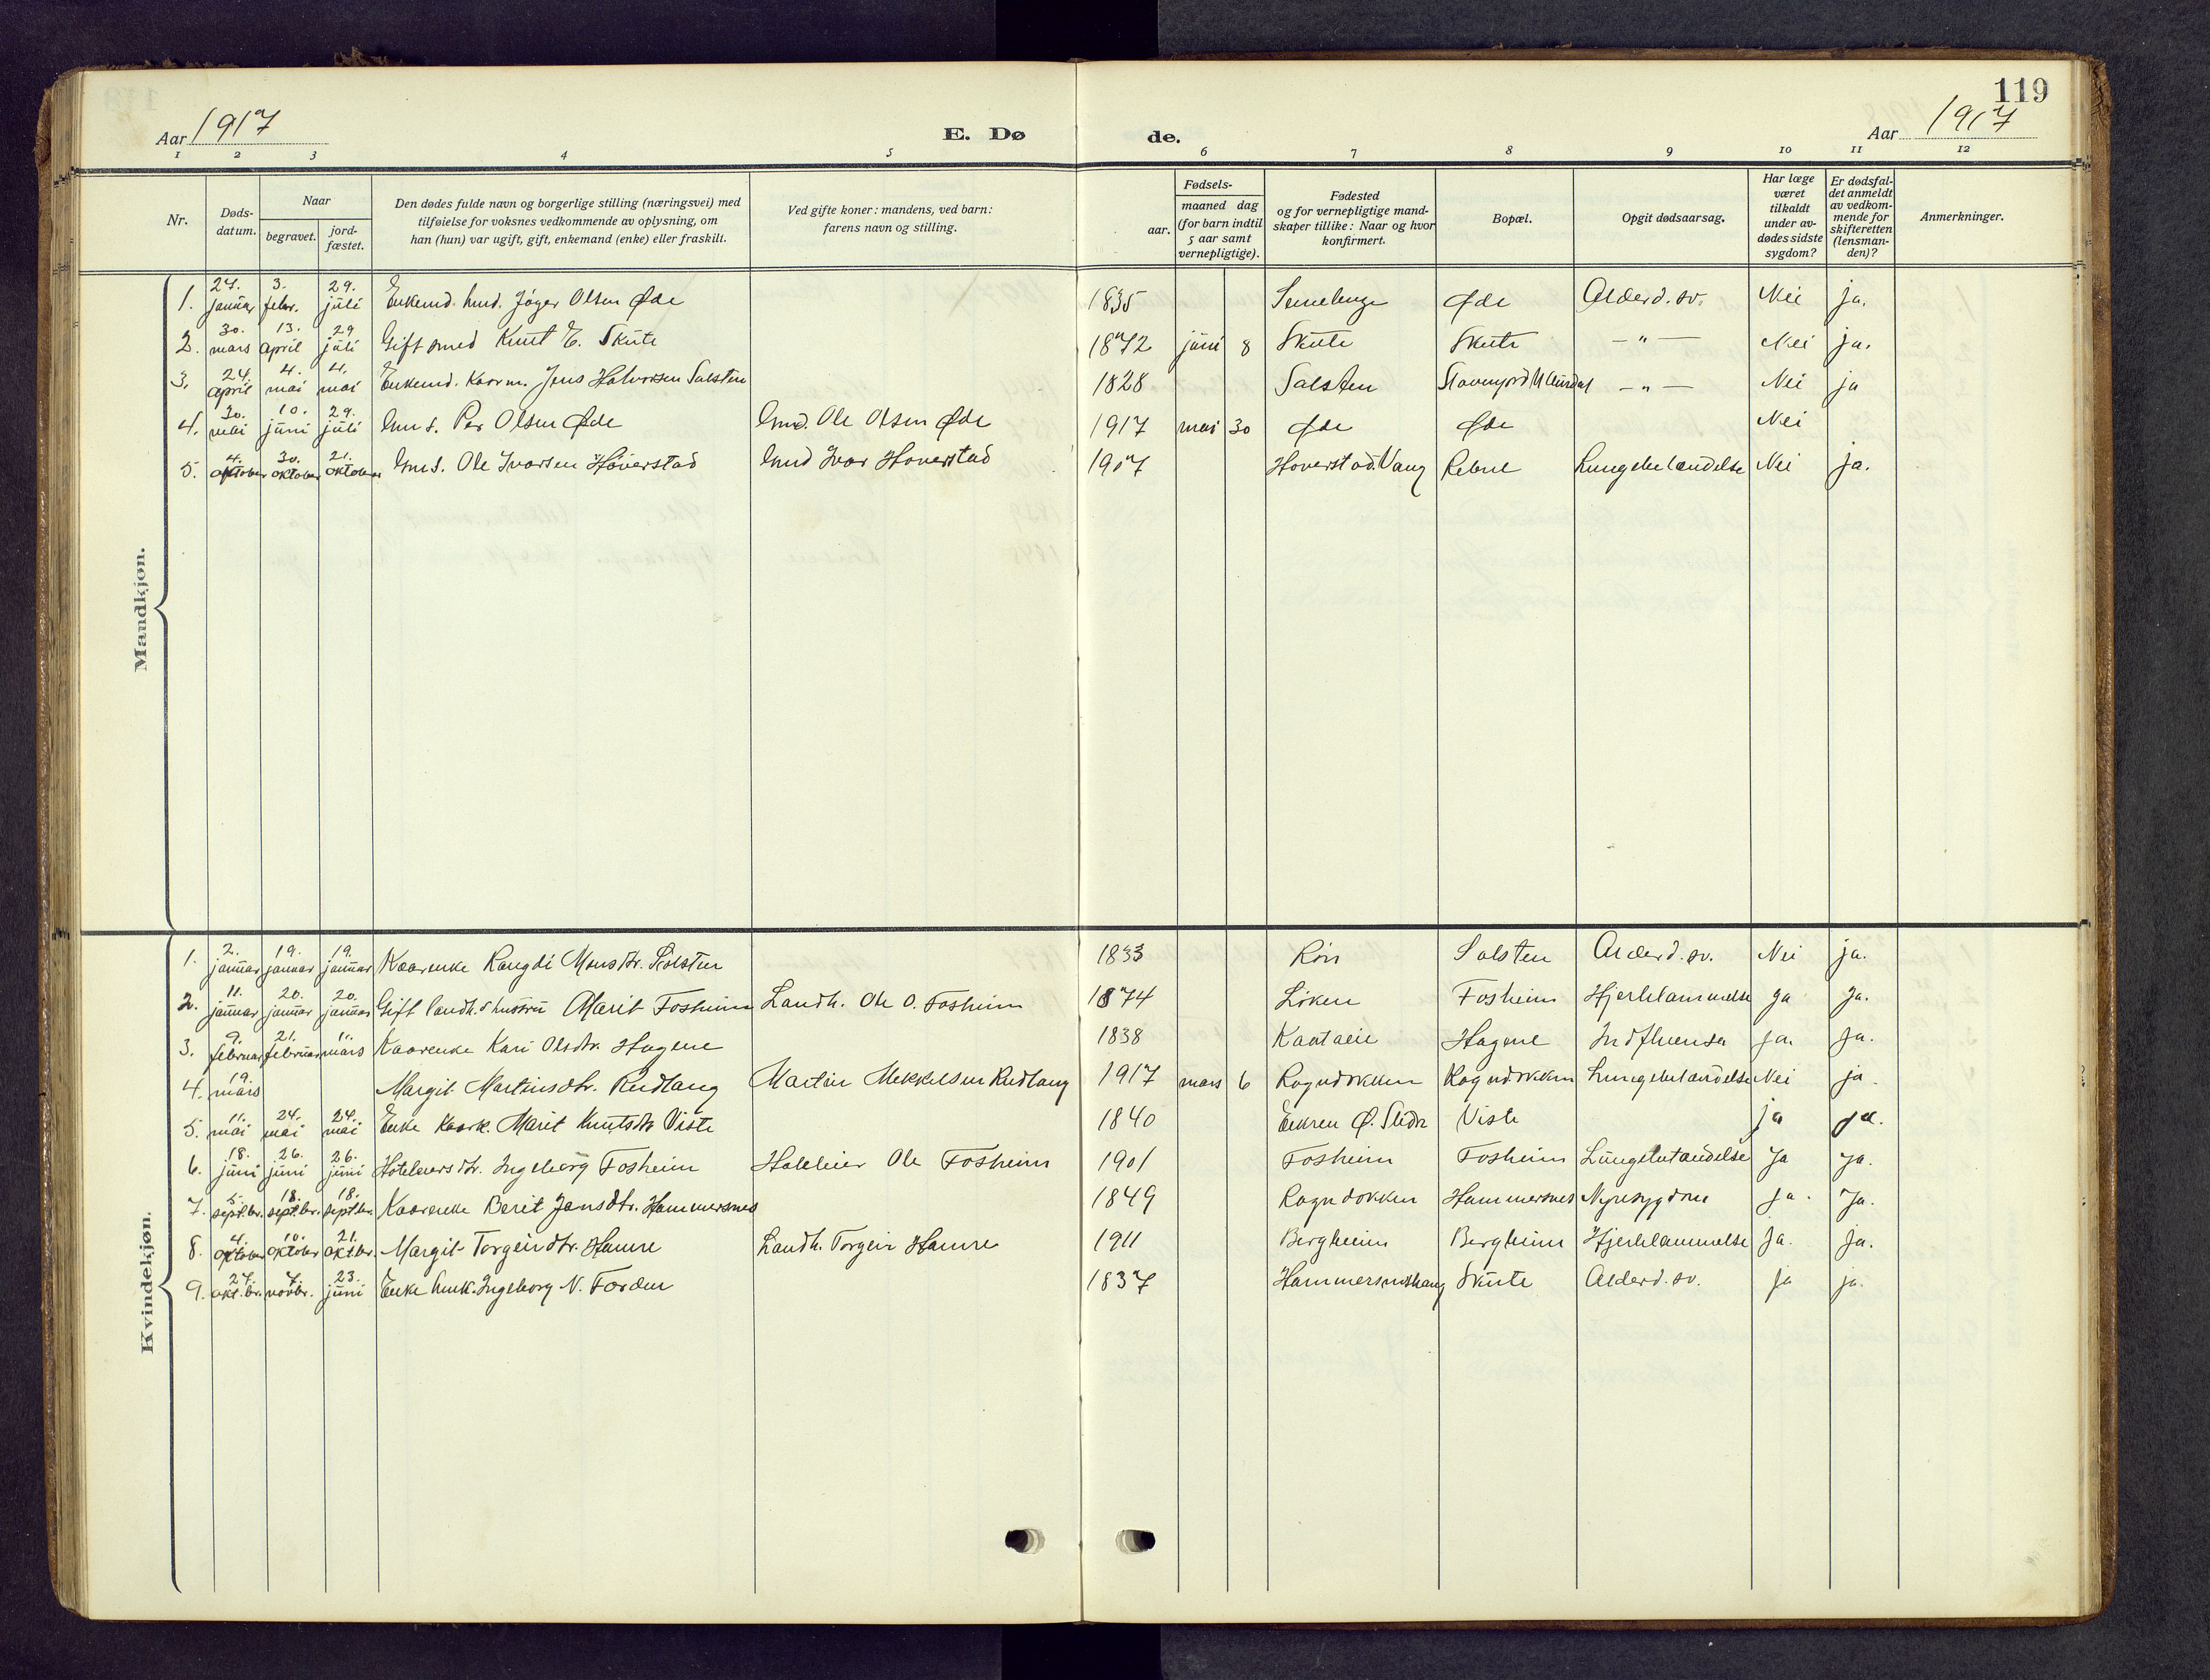 119
Aar 1917 E. Dø de. Aar 1917
1 2 3 4 5 6 7 8 9 10 11 12
Nr. Døds-datum. Naar begravet. jord-fæstet. Den dødes fulde navn og borgerlige stilling (næringsvei) med tilføielse for voksnes vedkommende av oplysning, om han (hun) var ugift, gift, enkemand (enke) eller fraskilt. Ved gifte koner: mandens, ved barn: farens navn og stilling. Fødsels- aar. maaned dag (for barn indtil 5 aar samt vernepligtige). Fødested og for vernepligtige mand-skaper tillike: Naar og hvor konfirmert. Bopæl. Opgit dødsaarsag. Har læge været tilkaldt under av-dødes sidste sygdom? Er dødsfal-det anmeldt av vedkom-mende for skifteretten (lensman-den)? Anmerkninger.
Mandkjøn.
1. 27. januar 3. febr. 29. juli Enkemd. Gmd. Jøger Olsen Øde 1835 Øde Alderd. sv. Nei ja.
2. 30. mars 13. april 29 juli Gift smed Knut E. Skute 1872 juni 8 Skute Skute — " — Nei ja.
3. 24. april 4. mai 4. mai Enkemd. Kaarm. Jens Halvorsen Salsten 1828 Salsten — " — Nei ja
4. 30. mai 10. juni 29. juli Gmds. Per Olsen Øde Gmd. Ole Olsen Øde 1917 mai 30 Øde Øde Nei
5. 4. oktober 30. oktober 21. oktober Gmds. Ole Ivarsen Høverstad Gmd Ivar Hoverstad 1907 Hoverstad. Vang Rebne Lungebetændelse Nei ja.
Kvindekjøn.
1. 2. januar 19. januar 19. januar Kaarenke Rangdi Monsdtr. Solsten 1833 Røn Salsten Alderd. sv. Nei ja.
2. 11. januar 20. januar 20. januar Gift landh.s hustru Marit Fosheim Landh. Ole O. Fosheim 1874 Løken Fosheim Hjertelammelse ja ja.
3. 9. februar 21. februar 11. mars Kaarenke Kari Olsdtr. Hagene 1838 Hagene Indfluensa ja. ja.
4. 19. mars Margit Martinsdtr. Rudlang Martin Mekkelsen Rudlang 1917 mars 6 Rogndokken Rogndokken Lungebetændelse Nei ja.
5. 11. mai 24. mai 24. mai Enke Kaark. Marit Knutsdtr Viste 1840 Eukren Ø. Slidre Viste ja ja.
6. 18. juni 26. juni 26. juni Hoteleiersdtr. Ingeborg Fosheim Hoteleier Ole Fosheim 1901 Fosheim Fosheim Lungebetændelse Ja ja.
7. 5. septbr. 18. septbr. 18. septbr. Kaarenke Berit Jensdtr. Hammersnes 1849 Rogndokken Hammersnes Nyresygdom ja. Ja.
8. 4. oktober 10. oktober 21. oktbr. Margit Torgeirdtr. Hamre Landh. Torgeir Hamre 1911 Bergheim Bergheim Hjertelammelse ja. ja.
9. 27. okt.br. 7. novbr. 23. juni Enke Gmk. Ingeborg N. Forden 1837 Hammersneshaug Skute Alderd. sv. ja ja.